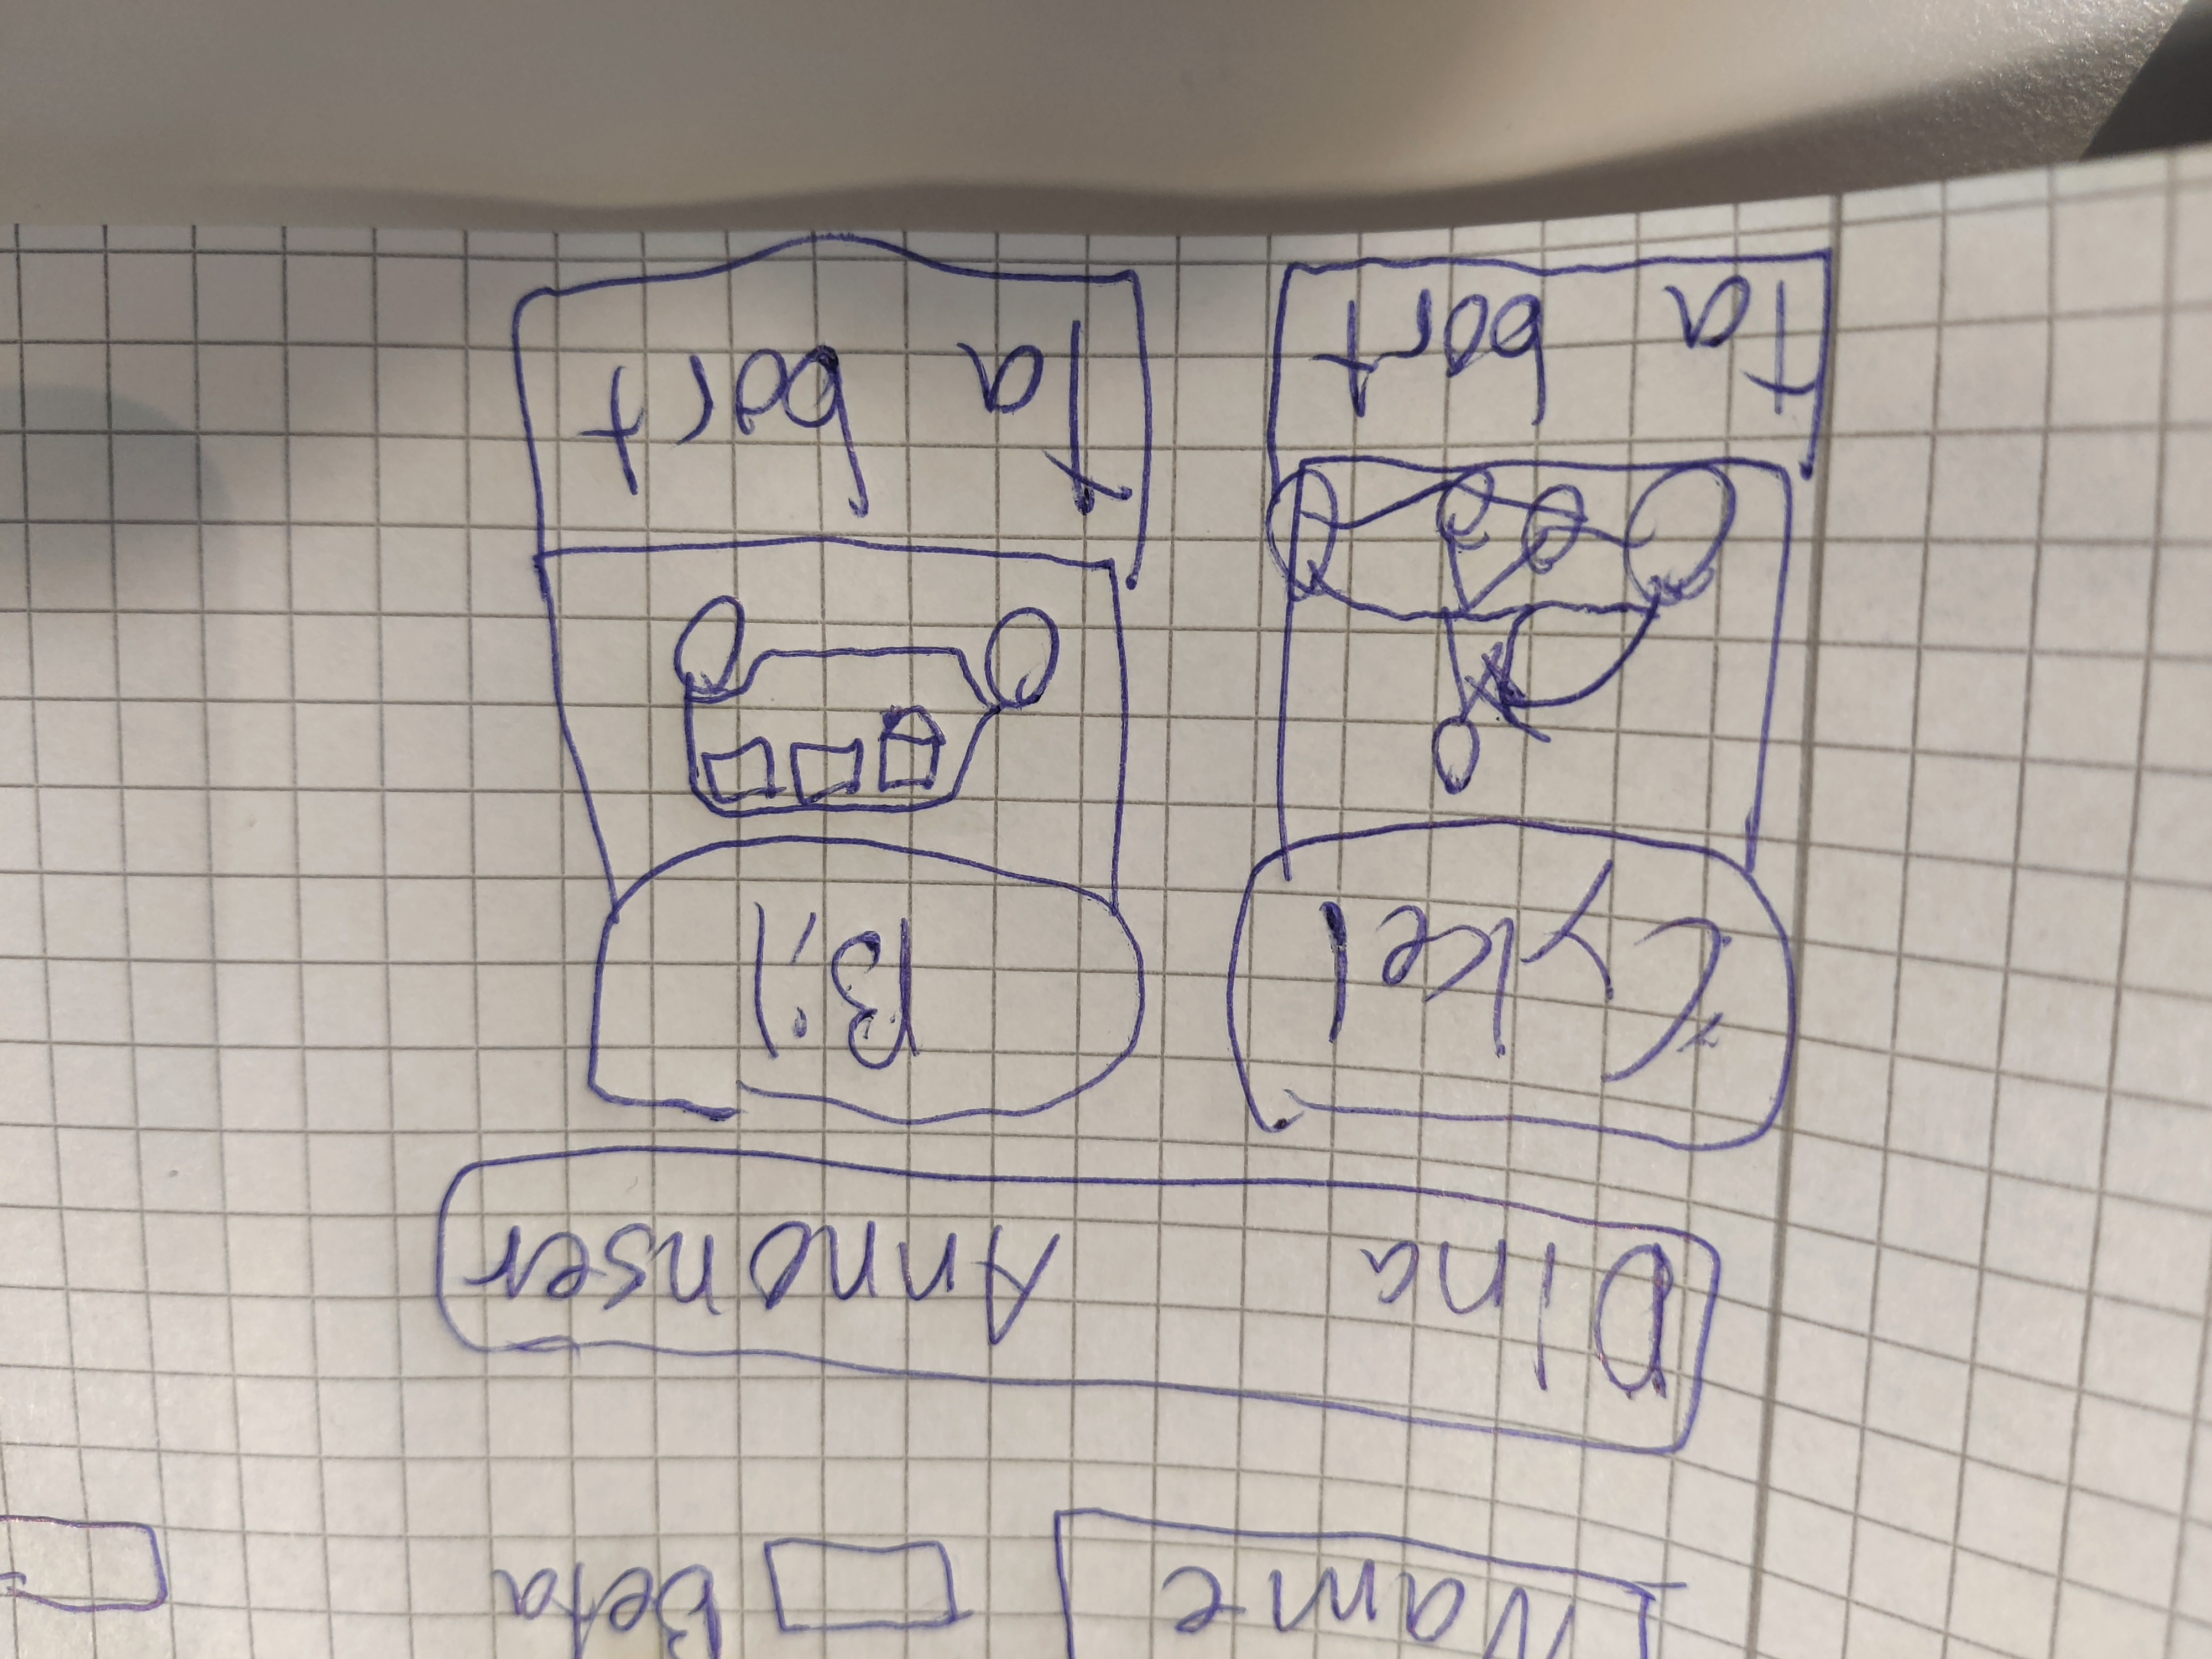 Name Beta
Dina Annonser
Cykel Bil
Ta bort Ta bort